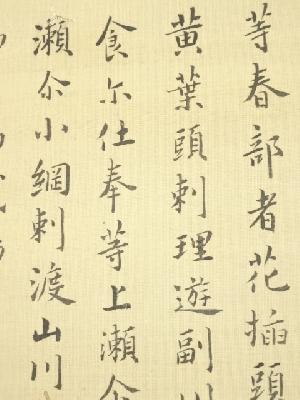 等春部者花插頭
黄葉頭刺理遊副川
食尓仕奉等上瀬尒
瀬尒小網刺渡山川